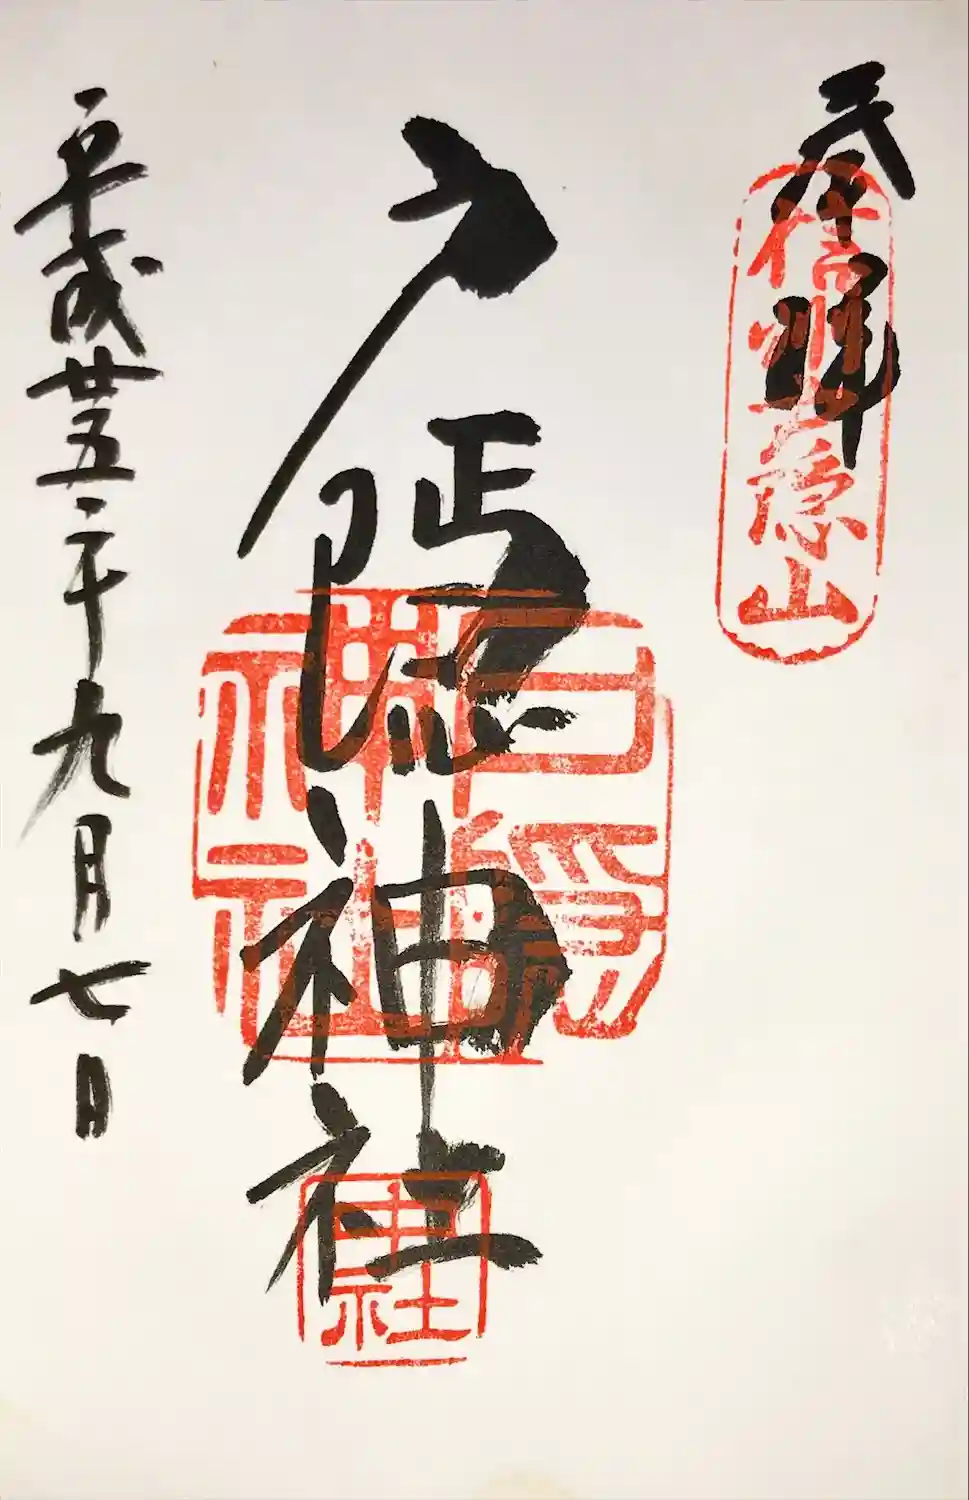 奉拝
信州戸隠山
戸隠神社
戸隠神社
中社
平成廿五年九月七日